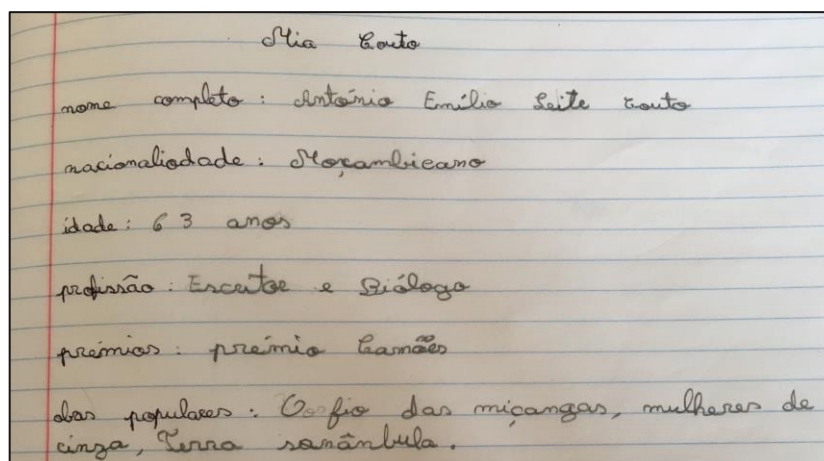 Mia Couto
nome completo: António Emílio Leite Couto
nacionaliodade: Moçambicano
idade: 63 anos
profissão: Escritor e Biólogo
prémios: prémio Camões
obas populares: O fio das miçangas, mulheres de
cinza, Terra sonânbula.